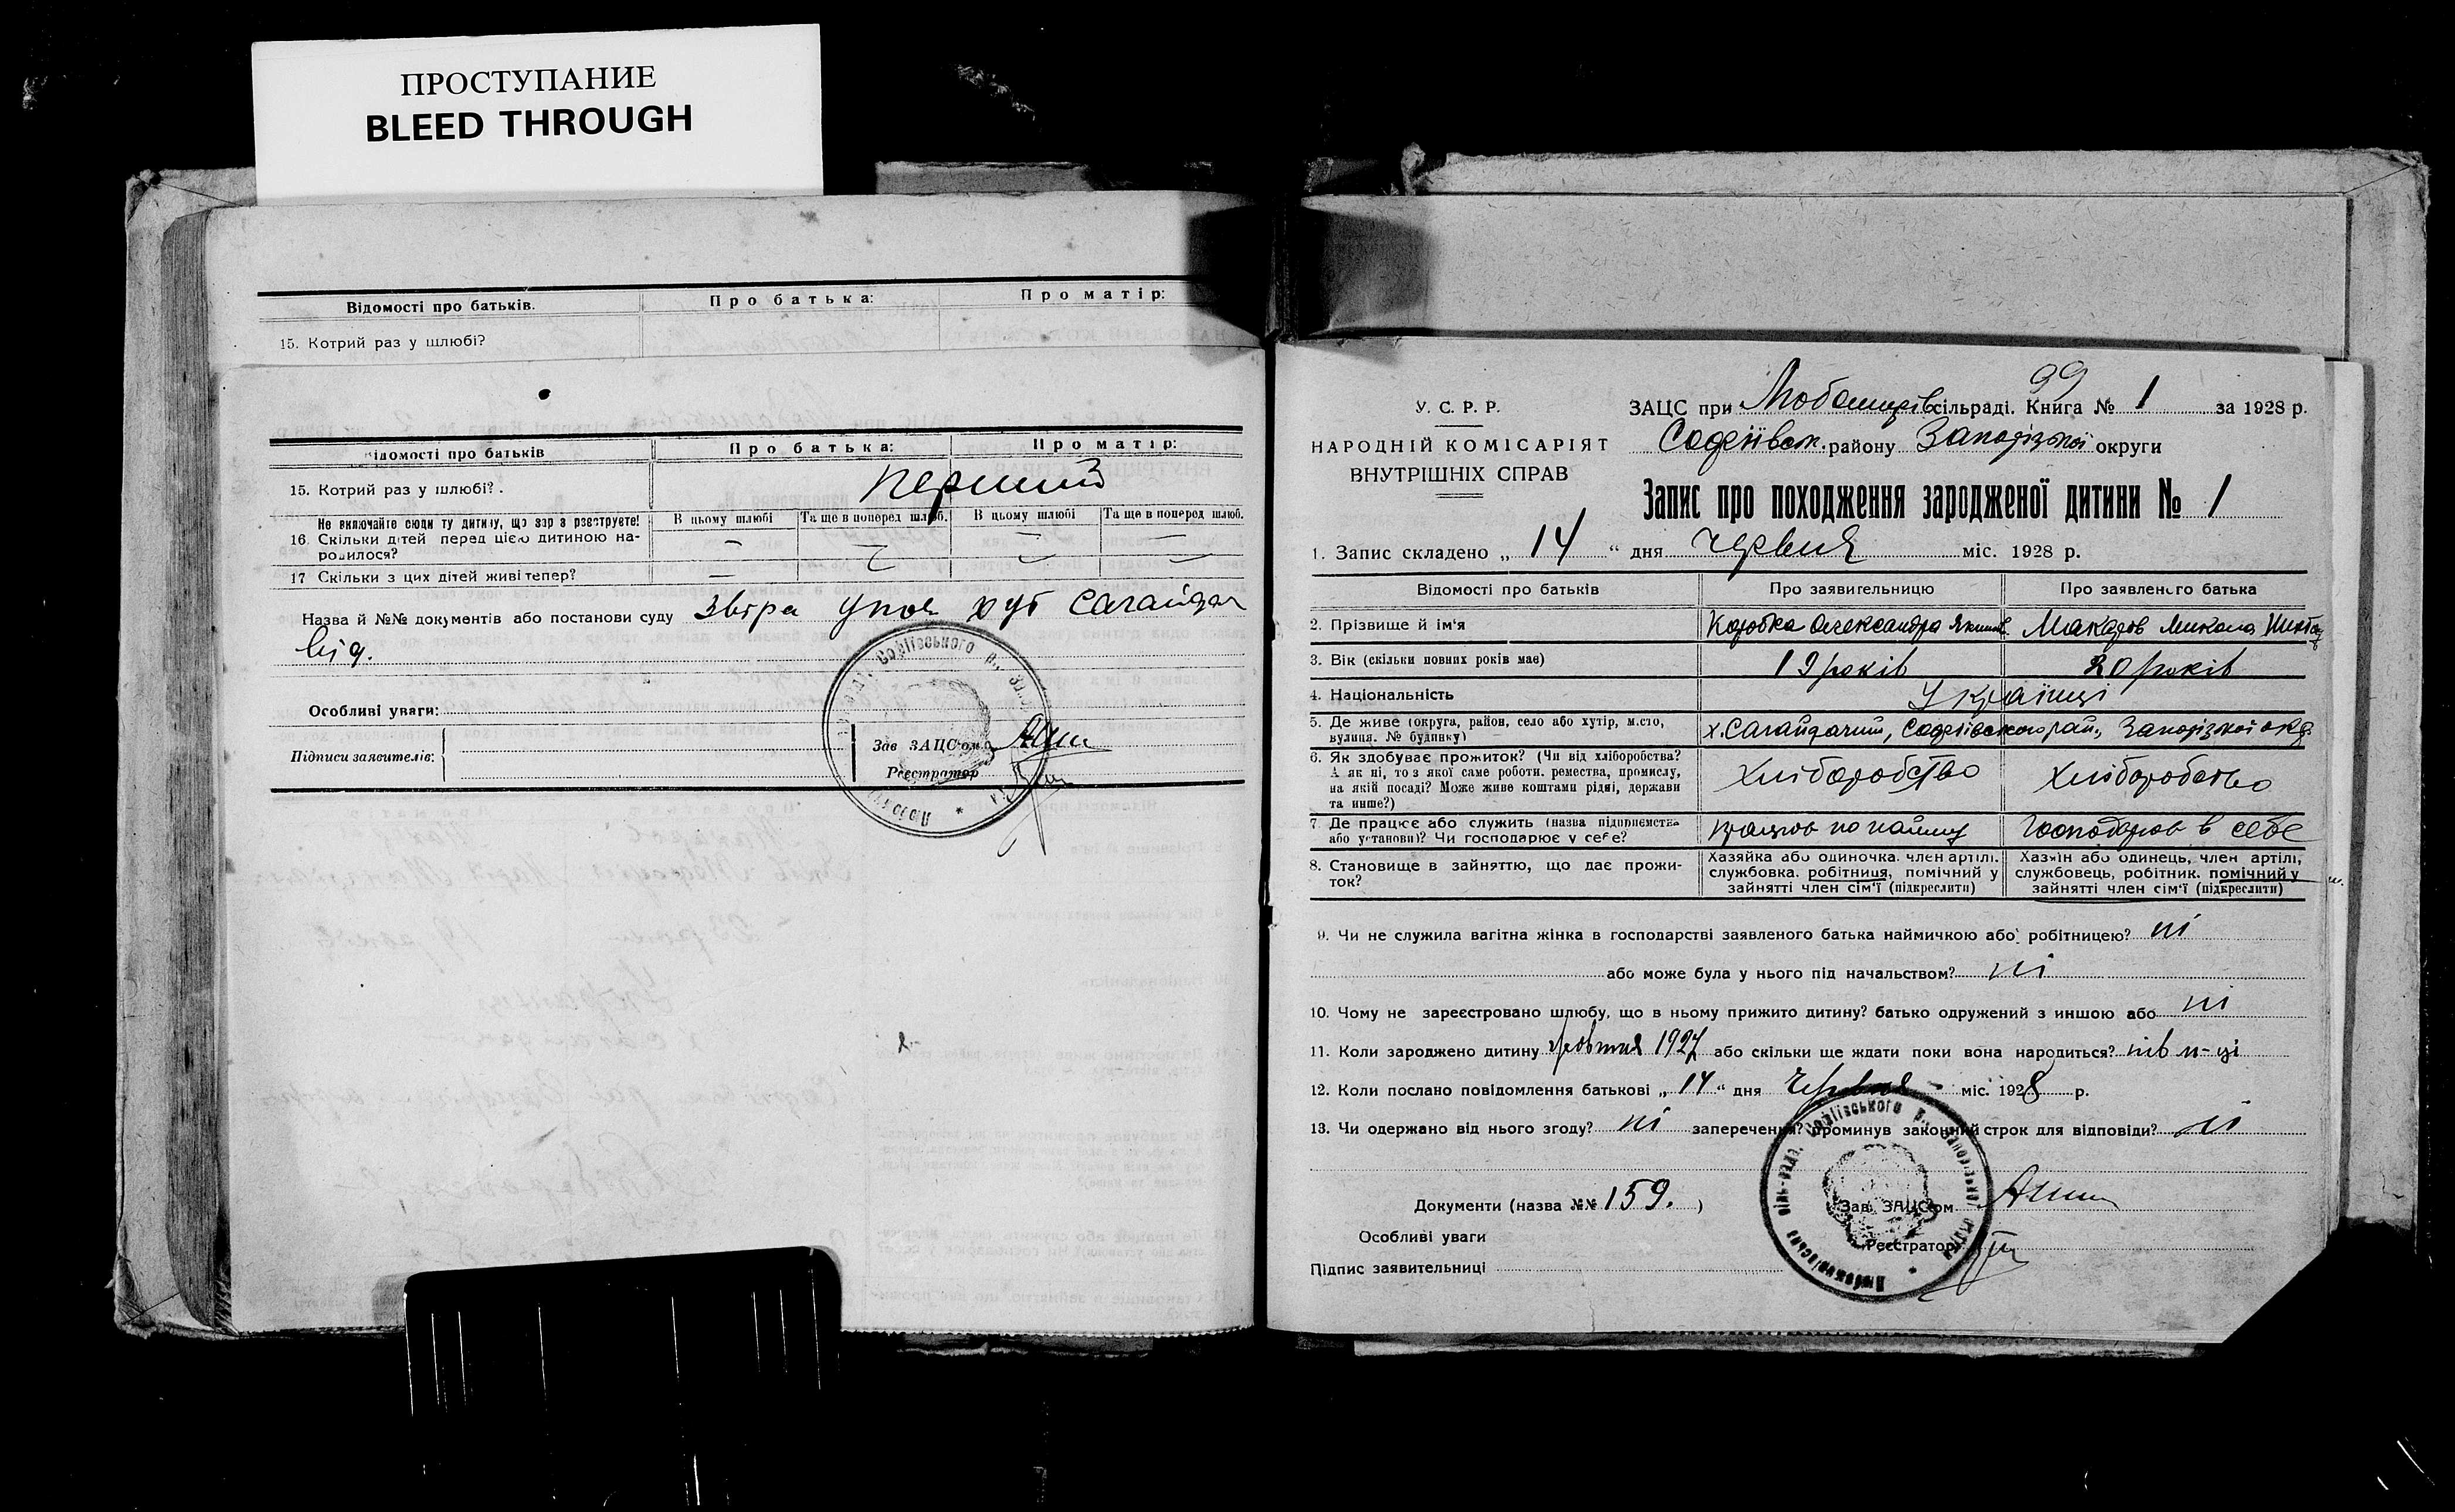 ПРОСТУПАНИЕ
BLEED THROUGH
Відомості про батьків. Про батька: Про матір:
15. Котрий раз у шлюбі?
Відомості про батьків Про батька: Про матір:
15. Котрий раз у шлюбі?. перший
Не включайте сюди ту дитину, що зар з реєструєте!
16. Скільки дітей перед цією дитиною народилося?
В цьому шлюбі Та ще в поперед шлюб. В цьому шлюбі Та ще в поперед шлюб.
— — — —
17 Скільки з цих дітей живі тепер? — — — —
Назва й №№ документів або постанови суду хут Сагайдач
від.
Особливі уваги:
Підписи заявителів:
Зав ЗАЦС'ом
Реєстратор
99
У. С. Р. Р.
НАРОДНІЙ КОМІСАРІЯТ
ВНУТРІШНІХ СПРАВ
ЗАЦС при сільраді. Книга № 1 за 1928 р.
Софіївськ. району Запорізької округи
Запис про походження зародженої дитини № 1
1. Запис складено „ 14 “ дня червня міс. 1928 р.
Відомості про батьків Про заявительницю Про заявленого батька
2. Прізвище й ім'я Коробка Олександра Яким. Макаров Микола
3. Вік (скільки повних років має) 19 років 20 років
4. Національність Українці
5. Де живе (округа, район, село або хутір, місто,
вулиця. № будинку)
х. Сагайдачий, Софіївського рай., Запорізької окр.
6. Як здобуває прожиток? (Чи від хліборобства?
А як ні, то з якої саме роботи. ремества, промислу,
на якій посаді? Може живе коштами рідні, держави
та инше?)
Хліборобство Хліборобство
7. Де працює або служить (назва підприємства
або установи)? Чи господарює у себе?
працюв по найму Господарюв в себе
8. Становище в зайняттю, що дає прожиток?
Хазяйка або одиночка. член артілі.
службовка. робітниця, помічний у
зайнятті член сім'ї (підкреслити)
Хазяїн або одинець, член артілі,
службовець, робітник. помічний у
зайнятті член сім'ї (підкреслити)
9. Чи не служила вагітна жінка в господарстві заявленого батька наймичкою або робітницею? ні
або може була у нього під начальством? ні
10. Чому не зареєстровано шлюбу, що в ньому прижито дитину? батько одружений з иншою або ні
11. Коли зароджено дитину жовтня 1927 або скільки ще ждати поки вона народиться? пів м-ці
12. Коли послано повідомлення батькові „ 14 “ дня Червня міс. 1928 р.
13. Чи одержано від нього згоду? ні заперечення? проминув законний строк для відповіди? ні
Документи (назва №№ 159. )
Зав. ЗАЦС'ом
Особливі уваги
Реєстратор
Підпис заявительниці